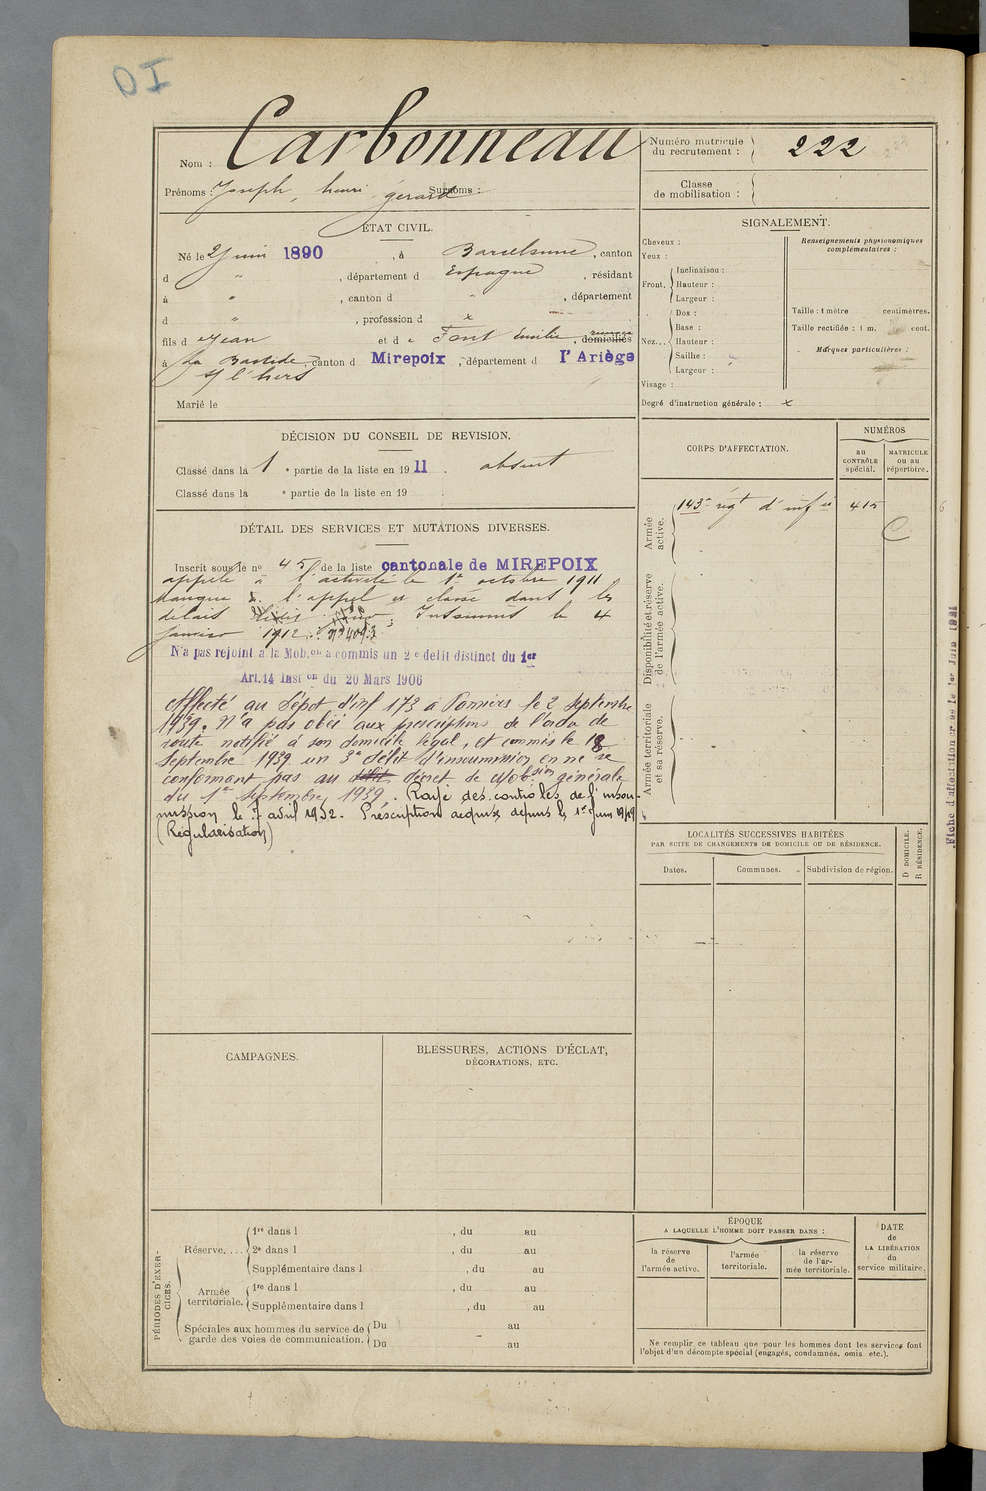 DI
Nom : Carbonneau
Prénoms : Joseph, henri gérard Surnoms :
Numéro matricule du recrutement : 222
Classe de mobilisation :
ÉTAT CIVIL.
Né le 2 juin 1890, à Barcelonne, canton
d " , département d Espagne, résidant
à " , canton d " , département
d " , profession d x
fils d e Jean et d e Font Emilie, domiciliés
à La Bastide s/ l'hers, canton d Mirepoix, département d l'Ariège
Marié le
SIGNALEMENT.
Cheveux :
Yeux :
Front. Inclinaison :
Hauteur :
Largeur :
Nez... Dos :
Base :
Hauteur :
Saillie :
Largeur :
Visage :
Renseignements physionomiques complémentaires :
Taille : 1 mètre centimètres.
Taille rectifiée : 1 m. cent.
Marques particulières :
Degré d'instruction générale : x
DÉCISION DU CONSEIL DE REVISION.
Classé dans la 1 e partie de la liste en 1911. absent
Classé dans la e partie de la liste en 19 .
DÉTAIL DES SERVICES ET MUTATIONS DIVERSES.
Inscrit sous le n° 45 de la liste cantonale de MIREPOIX
appelé à l'activité le 1er octobre 1911
Manque à l'appel et classé dans les
délais Insoumis le 4
janvier 1912
N'a pas rejoint à la Mob.on a commis un 2e délit distinct du 1er
Art.14 Inston du 20 Mars 1906
Affecté au Dépôt d'inf 173 à Pamiers le 2 Septembre
1939. N'a pas obéi aux prescriptions de l'ordre de
route notifié à son domicile légal, et commis le 18
Septembre 1939 un 3e délit d'insoumission en ne se
conformant pas au délit décret de Mobsion générale
du 1er Septembre 1939. Rayé des contrôles de l'insou-
mission le 7 avril 1952. Prescription acquise depuis le 1er Juin 1949
(Régularisation)
CORPS D'AFFECTATION.
NUMÉROS
au CONTRÔLE spécial.
MATRICULE ou au répertoire.
Armée active.
143e régt d'infie 415
C
Disponibilité et réserve de l'armée active.
Armée territoriale et sa réserve.
Fiche d'affectation créée le 1er Juin 1921
LOCALITÉS SUCCESSIVES HABITÉES
PAR SUITE DE CHANGEMENTS DE DOMICILE OU DE RÉSIDENCE.
Dates. Communes. Subdivision de région.
D DOMICILE.
R RÉSIDENCE.
CAMPAGNES.
BLESSURES, ACTIONS D'ÉCLAT,
DÉCORATIONS, ETC.
PÉRIODES D'EXERCICES.
Réserve.... 1re dans l , du au
2e dans l , du au
Supplémentaire dans l , du au
Armée territoriale. 1re dans l , du au
Supplémentaire dans l , du au
Spéciales aux hommes du service de garde des voies de communication. Du au
Du au
ÉPOQUE
A LAQUELLE L'HOMME DOIT PASSER DANS :
la réserve de l'armée active.
l'armée territoriale.
la réserve de l'armée territoriale.
DATE de LA LIBÉRATION du service militaire.
Ne remplir ce tableau que pour les hommes dont les services font
l'objet d'un décompte spécial (engagés, condamnés, omis, etc.).